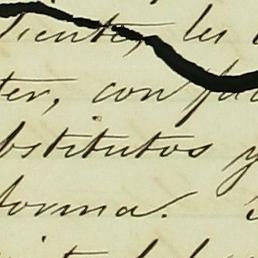 diente, les
ter, con fac
bstitutos y
forma.